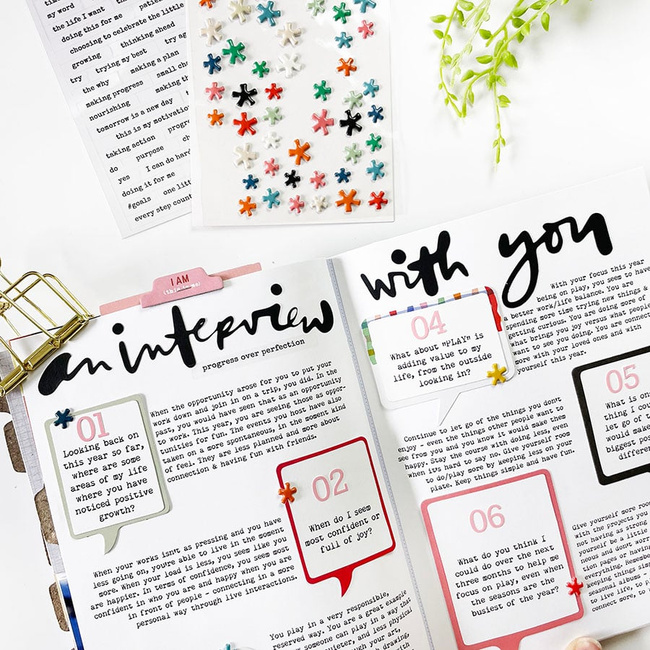 my word
the life I want
doing this for me
choosing to celebrate the little
growing thinking ahead
try trying my best try ag
the why making a plan
making progress small
nourishing making
tomorrow is a new day
this is my motivatio
taking action progr
do purpose
yes I can do hard
doing it for me
#goals one litt
every step count
I AM
an interview
progress over perfection
01
Looking back on
this year so far,
where are some
areas of my life
where you have
noticed positive
growth?
When the opportunity arose for you to put your
work down and join in on a trip, you did. In the
past, you would have seen that as an opportunity
to work. This year, you are seeing those as oppor-
tunities for fun. The events you host have also
taken on a more spontaneous, in the moment kind
of feel. They are less planned and more about
connection & having fun with friends.
02
When do I seem
most confident or
full of joy?
When your works isn't as pressing and you have
less going on, you're able to live in the moment
more. When your load is less, you seem like you
are happier. In terms of confidence, you seem most
confident in who you are and happy when you are
in front of people - connecting in a more
personal way through live interactions.
You play in a very responsible,
reserved way. You are a great example
someone can play in a way that
quieter, and less physical
through your art,
with you
With your focus this year
being on play, you seem to have
a better work/life balance. You are
spending more time trying new things &
getting curious. You are doing more of
what brings you joy versus what people
want to see you doing. You are connect
more with your loved ones and with
yourself this year.
04
What about "PLAY" is
adding value to my
life, from the outside
looking in?
Continue to let go of the things you don't
enjoy - even the things other people want to
see from you and you know it would make them
happy. Stay the course with doing less, even
when it's hard to say no. Give yourself room
to do/play more by keeping less on your
plate. Keep things simple and have fun.
05
What is on
thing I cou
let go of t
would make
biggest pos
differen
06
What do you think I
could do over the next
three months to help me
focus on play, even when
the seasons are the
busiest of the year?
Give yourself more roo
with the projects you
yourself be a little
and donut worr
tion pages or having
everything. Remember
keeping things simple
seasonal album -
to live life, to pla
connect more, to